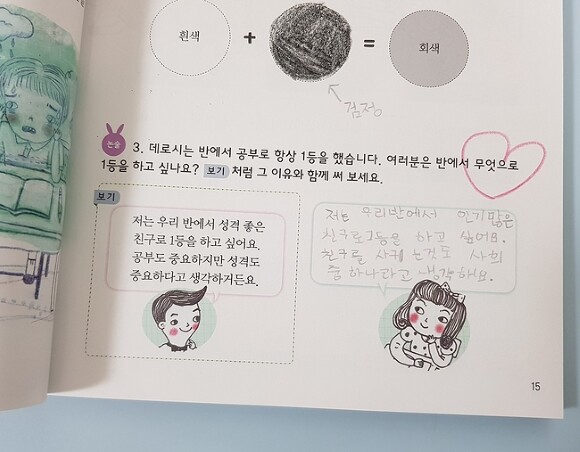 흰색 + = 회색
검정
논술 3. 데로시는 반에서 공부로 항상 1등을 했습니다. 여러분은 반에서 무엇으로
1등을 하고 싶나요? 보기 처럼 그 이유와 함께 써 보세요.
보기
저는 우리 반에서 성격 좋은
친구로 1등을 하고 싶어요.
공부도 중요하지만 성격도
중요하다고 생각하거든요.
저는 우리반에서 인기많은
친구로1등을 하고 싶어요.
친구를 사귀는건도 사회
중하나라고 생각해요.
15